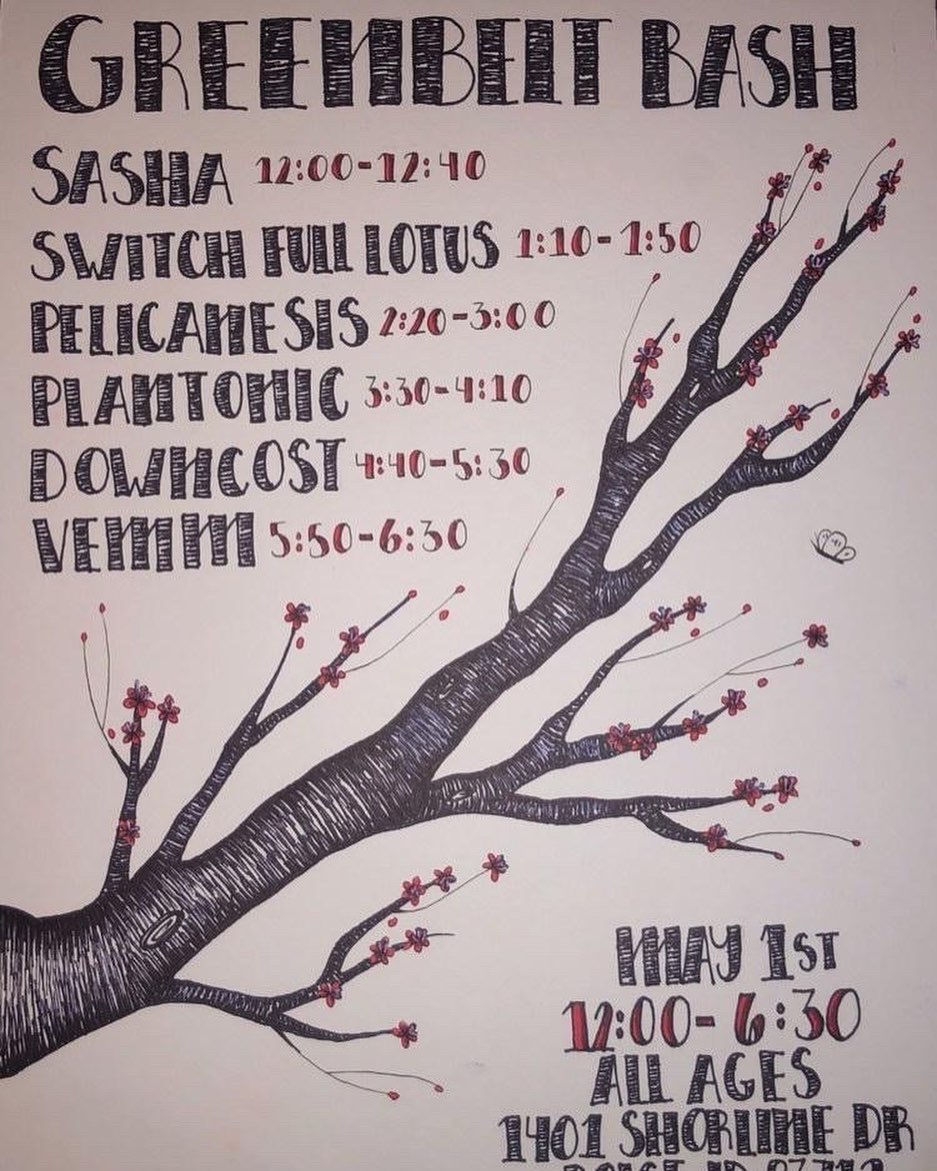 GREENBELT BASH
SASHA 12:00-12:40
SWITCH FULL LOTUS 1:10-1:50
PELICANESIS 2:20-3:00
PLANTONIC 3:30-4:10
DOWNCOST 4:40-5:30
VEMM 5:50-6:30
MAY 1ST
12:00-6:30
ALL AGES
1401 SHORLINE DR